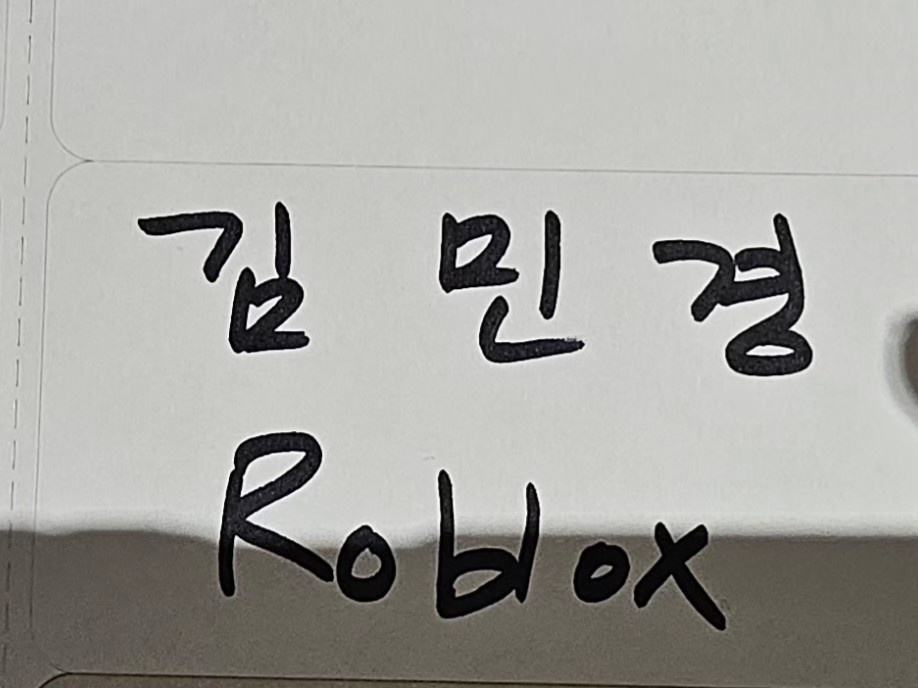 김 민 경
Roblox